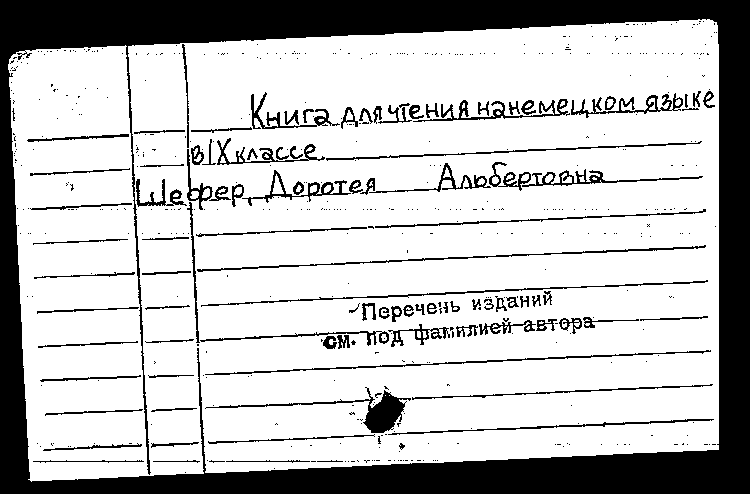 Книга для чтения на немецком языке
в IX классе.
Шефер, Доротея Альбертовна
Перечень изданий
см. под фамилией автора